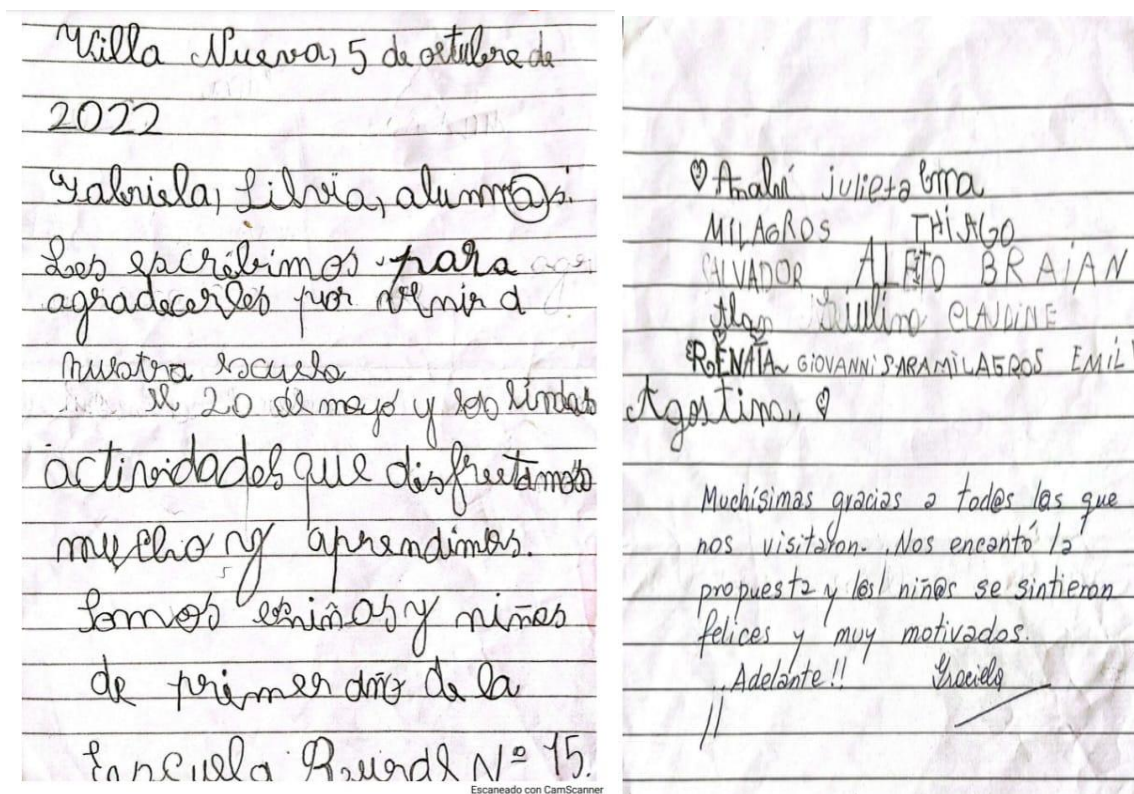 Villa Nueva, 5 de octubre de
2022
Gabriela, Silvia, alumn@s:
Les escribimos para
agradecerles por venir a
nuestra escuela
el 20 de mayo y las lindas
actividades que disfrutamos
mucho y aprendimos.
Somos niños y niñas
de primer año de la
Escuela Rural Nº 15.
Escaneado con CamScanner
Analí julieta Ema
MILAGROS THIAGO
SALVADOR ALEJO BRAIAN
Alan CLAUDINE
RENATA GIOVANNI SARA MILAGROS EMIL
Agostina
Muchísimas gracias a tod@s l@s que
nos visitaron. Nos encantó la
propuesta y l@s niñ@s se sintieron
felices y muy motivados.
¡¡Adelante!! Graciela